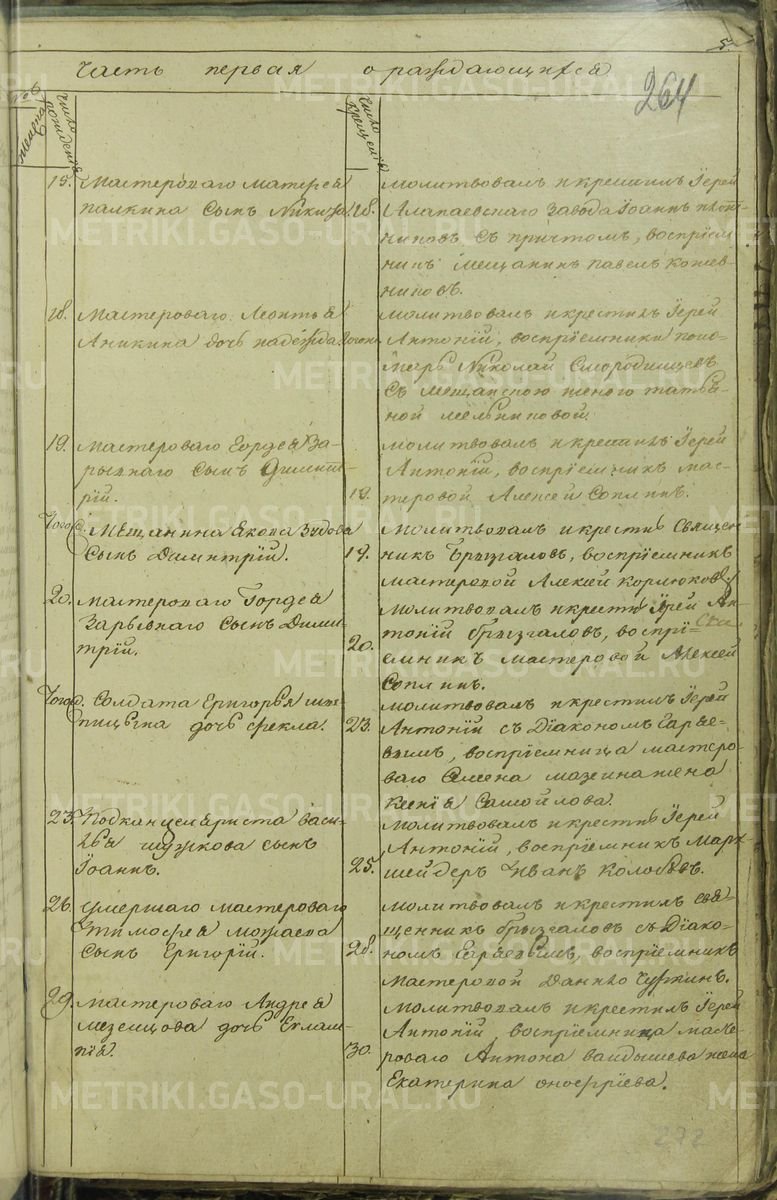 5.
Часть первая о раждающихся
264
Число рождения
Число крещения
15. Мастероваго Матфея
палкина Сынъ Никита
18. Молитвовалъ и крестилъ Іерей
Алапаевскаго завода Іоаннъ
съ притчомъ, воспріем
никъ мещанинъ павелъ кожев
никовъ.
18. Мастероваго Леонтья
Аникина дочь надежда.
Молитвовалъ и крестилъ Іерей
Антоній, воспріемники поно-
марь Николай Смородинцевъ
съ мещанскою женою татья-
ной мельниковой.
19. Мастероваго Гордея За-
рывнаго сынъ Димит-
рій.
19. Молитвовалъ и крестилъ Іерей
Антоній, воспріемникъ мас-
теровой Алексей Соплинъ.
Того д. Мещанина Якова Зудова
Сынъ Димитрій.
19. Молитвовалъ и крестилъ Священ
никъ Брызгаловъ, воспріемникъ
мастеровой Алексей кормоковъ
20. Мастероваго Гордея
Зарывнаго сынъ Дими-
трій.
20. Молитвовалъ и крестилъ Іерей Ан-
тоній брызгаловъ, воспрі-
емникъ мастеровой Алексей
Соплинъ.
Того д. Солдата Григорья ши-
пицына дочь Фекла.
23. Молитвовалъ и крестилъ Іерей
Антоній съ Діакономъ Гаряе-
вымъ, воспріемница мастеро-
ваго Семена мазеина жена
Ксенія Самойлова.
23. Подканцеляриста васи-
лья шуткова сынъ
Іоаннъ.
25. Молитвовалъ и крестилъ Іерей
Антоній, воспріемникъ Марк-
шейдеръ Иванъ Колобовъ.
26. умершаго мастероваго
Тимофея можаева
Сынъ Григорій.
28. Молитвовалъ и крестилъ свя-
щенникъ брызгаловъ съ Діако-
номъ Гаряевымъ, воспріемникъ
мастеровой Данило Чуркинъ.
29. Мастероваго Андрея
мезенцова дочь Евлам-
пія.
30. Молитвовалъ и крестилъ Іерей
Антоній, воспріемница масте-
роваго Антона вандышева жена
Екатерина оноофріева.
272
METRIKI.GASO-URAL.RU